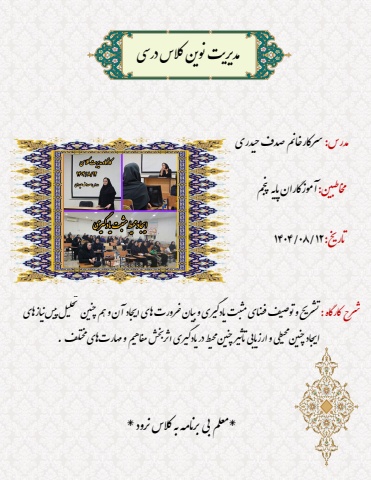 مدیریت نوین کلاس درسی
مدرس: سرکار خانم صدف حیدری
مخاطبین: آموزگاران پایه پنجم
تاریخ: ۱۴۰۴/۰۸/۱۲
ایجاد محیط مثبت یادگیری
شرح کارگاه: تشریح و توصیف فضای مثبت یادگیری و بیان ضرورت های ایجاد آن و هم چنین تحلیل پیش نیازهای
ایجاد چنین محیطی و ارزیابی تأثیر چنین محیط در یادگیری اثربخش مفاهیم و مهارت های مختلف .
*معلم بی برنامه به کلاس نرود *